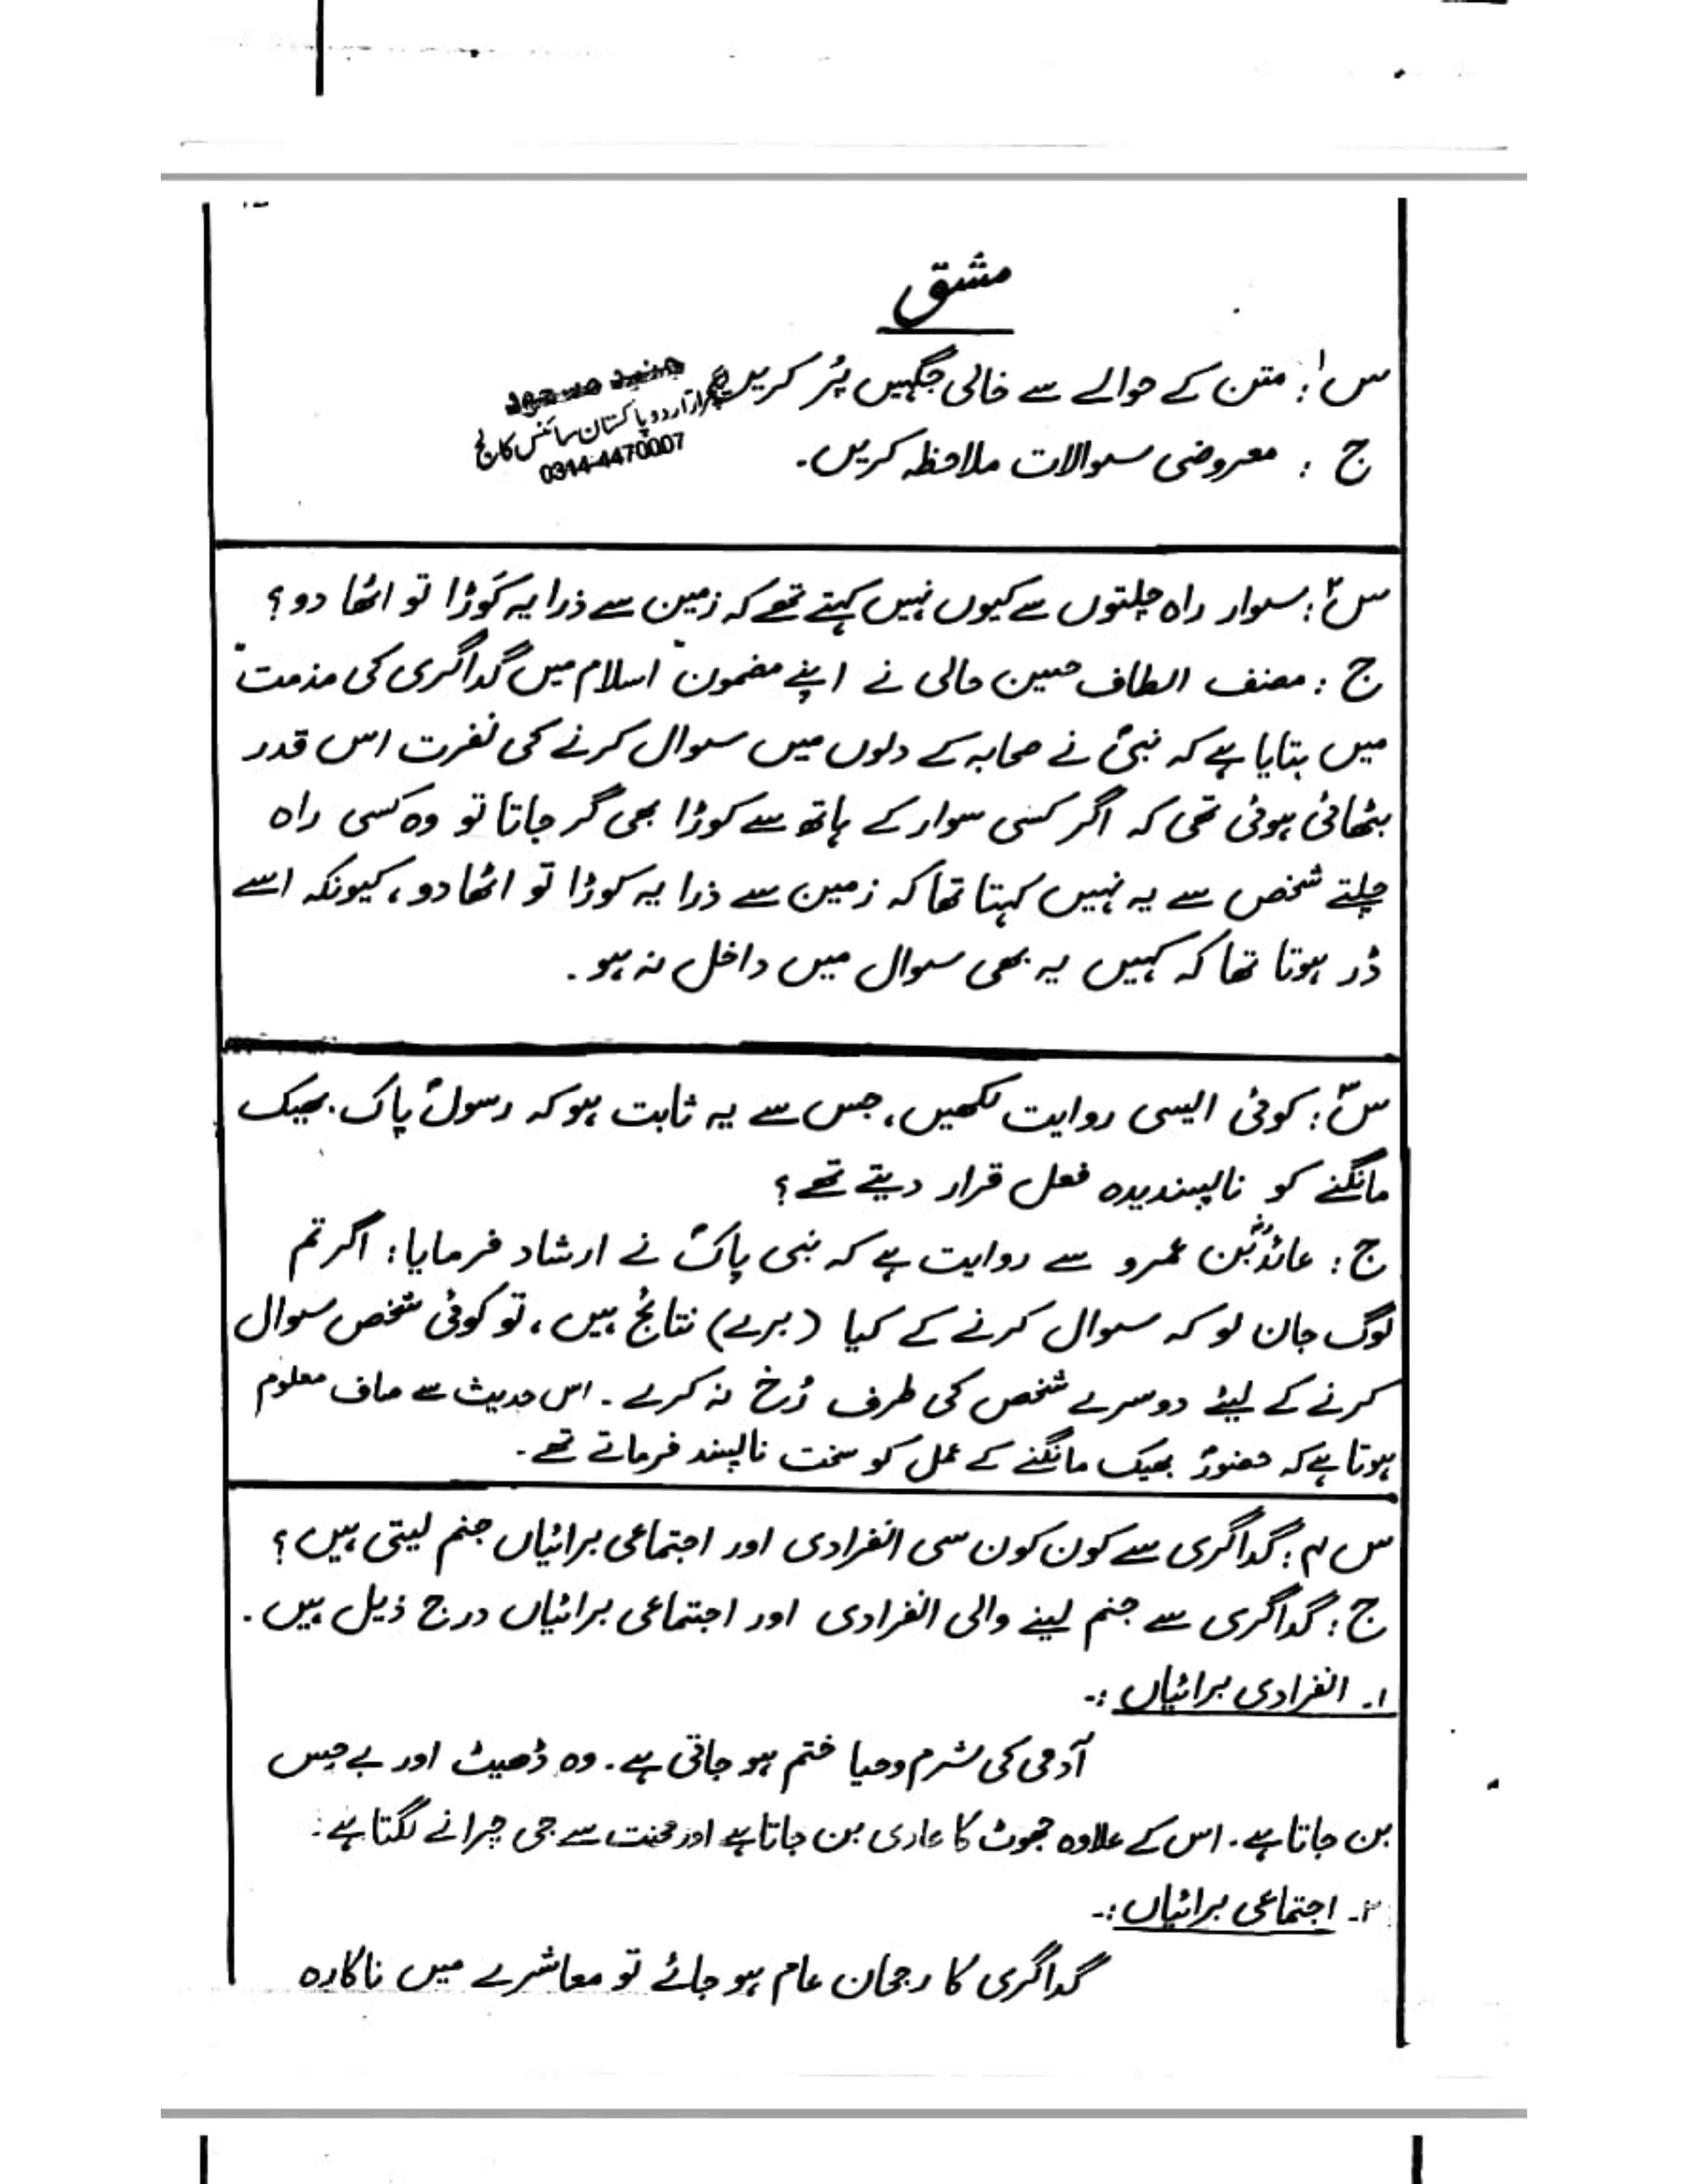 مشق
س۱: متن کے حوالے سے خالی جگہیں پُر کریں۔
جنید مسعود
لیکچرار اردو پاکستان سائنس کالج
0314-4470007
ج : معروضی سوالات ملاحظہ کریں۔
س۲: سوار راہ چلتوں سے کیوں نہیں کہتے تھے کہ زمین سے ذرا یہ کَوڑا تو اٹھا دو؟
ج : مصنف الطاف حسین حالی نے اپنے مضمون "اسلام میں گداگری کی مذمت"
میں بتایا ہے کہ نبیؐ نے صحابہ کے دلوں میں سوال کرنے کی نفرت اس قدر
بٹھائی ہوئی تھی کہ اگر کسی سوار کے ہاتھ سے کوڑا بھی گر جاتا تو وہ کسی راہ
چلتے شخص سے یہ نہیں کہتا تھا کہ زمین سے ذرا یہ کوڑا تو اٹھا دو، کیونکہ اسے
ڈر ہوتا تھا کہ کہیں یہ بھی سوال میں داخل نہ ہو۔
س۳: کوئی ایسی روایت لکھیں، جس سے یہ ثابت ہو کہ رسولؐ پاک بھیک
مانگنے کو ناپسندیدہ فعل قرار دیتے تھے؟
ج : عائذؓ بن عمرو سے روایت ہے کہ نبی پاکؐ نے ارشاد فرمایا: اگر تم
لوگ جان لو کہ سوال کرنے کے کیا (برے) نتائج ہیں، تو کوئی شخص سوال
کرنے کے لیئے دوسرے شخص کی طرف رُخ نہ کرے۔ اس حدیث سے صاف معلوم
ہوتا ہے کہ حضورؐ بھیک مانگنے کے عمل کو سخت ناپسند فرماتے تھے۔
س۴: گداگری سے کون کون سی انفرادی اور اجتماعی برائیاں جنم لیتی ہیں؟
ج: گداگری سے جنم لینے والی انفرادی اور اجتماعی برائیاں درج ذیل ہیں۔
۱۔ انفرادی برائیاں :۔
آدمی کی شرم و حیا ختم ہو جاتی ہے۔ وہ ڈھیٹ اور بے حِس
بن جاتا ہے۔ اس کے علاوہ جھوٹ کا عادی بن جاتا ہے اور محنت سے جی چرانے لگتا ہے۔
۲۔ اجتماعی برائیاں :۔
گداگری کا رجحان عام ہو جائے تو معاشرے میں ناکارہ